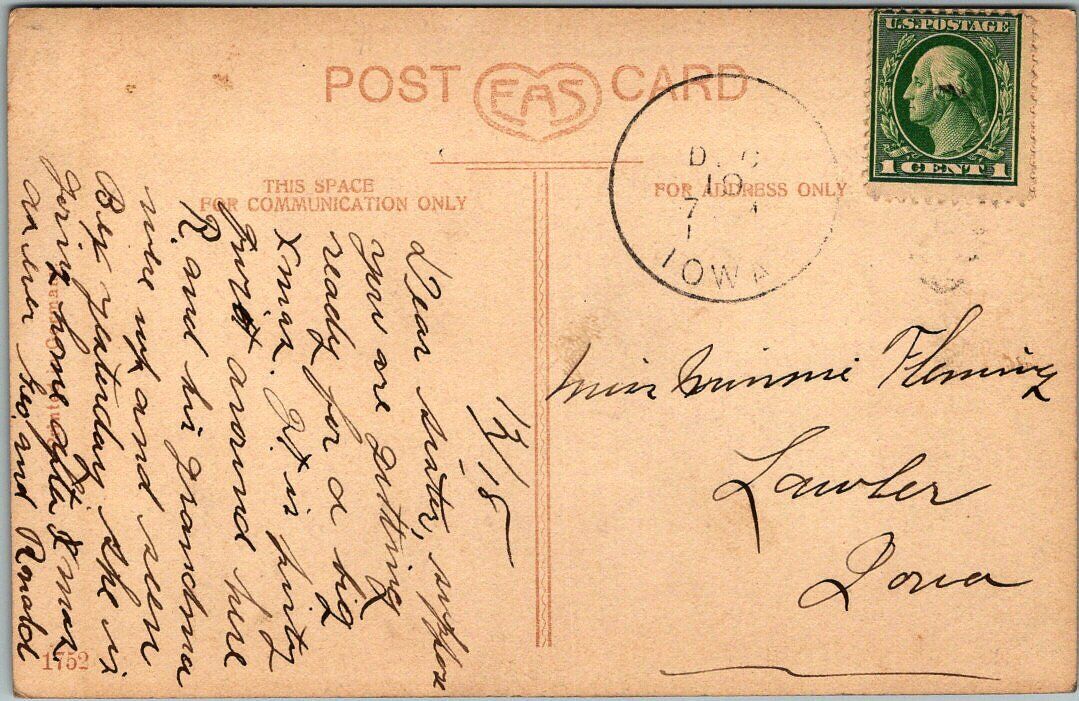 POST EAS CARD
THIS SPACE
FOR COMMUNICATION ONLY
FOR ADDRESS ONLY
U.S. POSTAGE
1 CENT 1
DEC
19
7
IOWA
12/15
Dear sister, suppose
you are getting
ready for a big
Xmas. It is pirty
quiet around here
R. and his grandma
were up and seen
Bex yesterday she is
going home after X mas
as ever Geo, and Ronald
Miss Minnie Fleming
Lawler
Iowa
Printed in Germany
1752